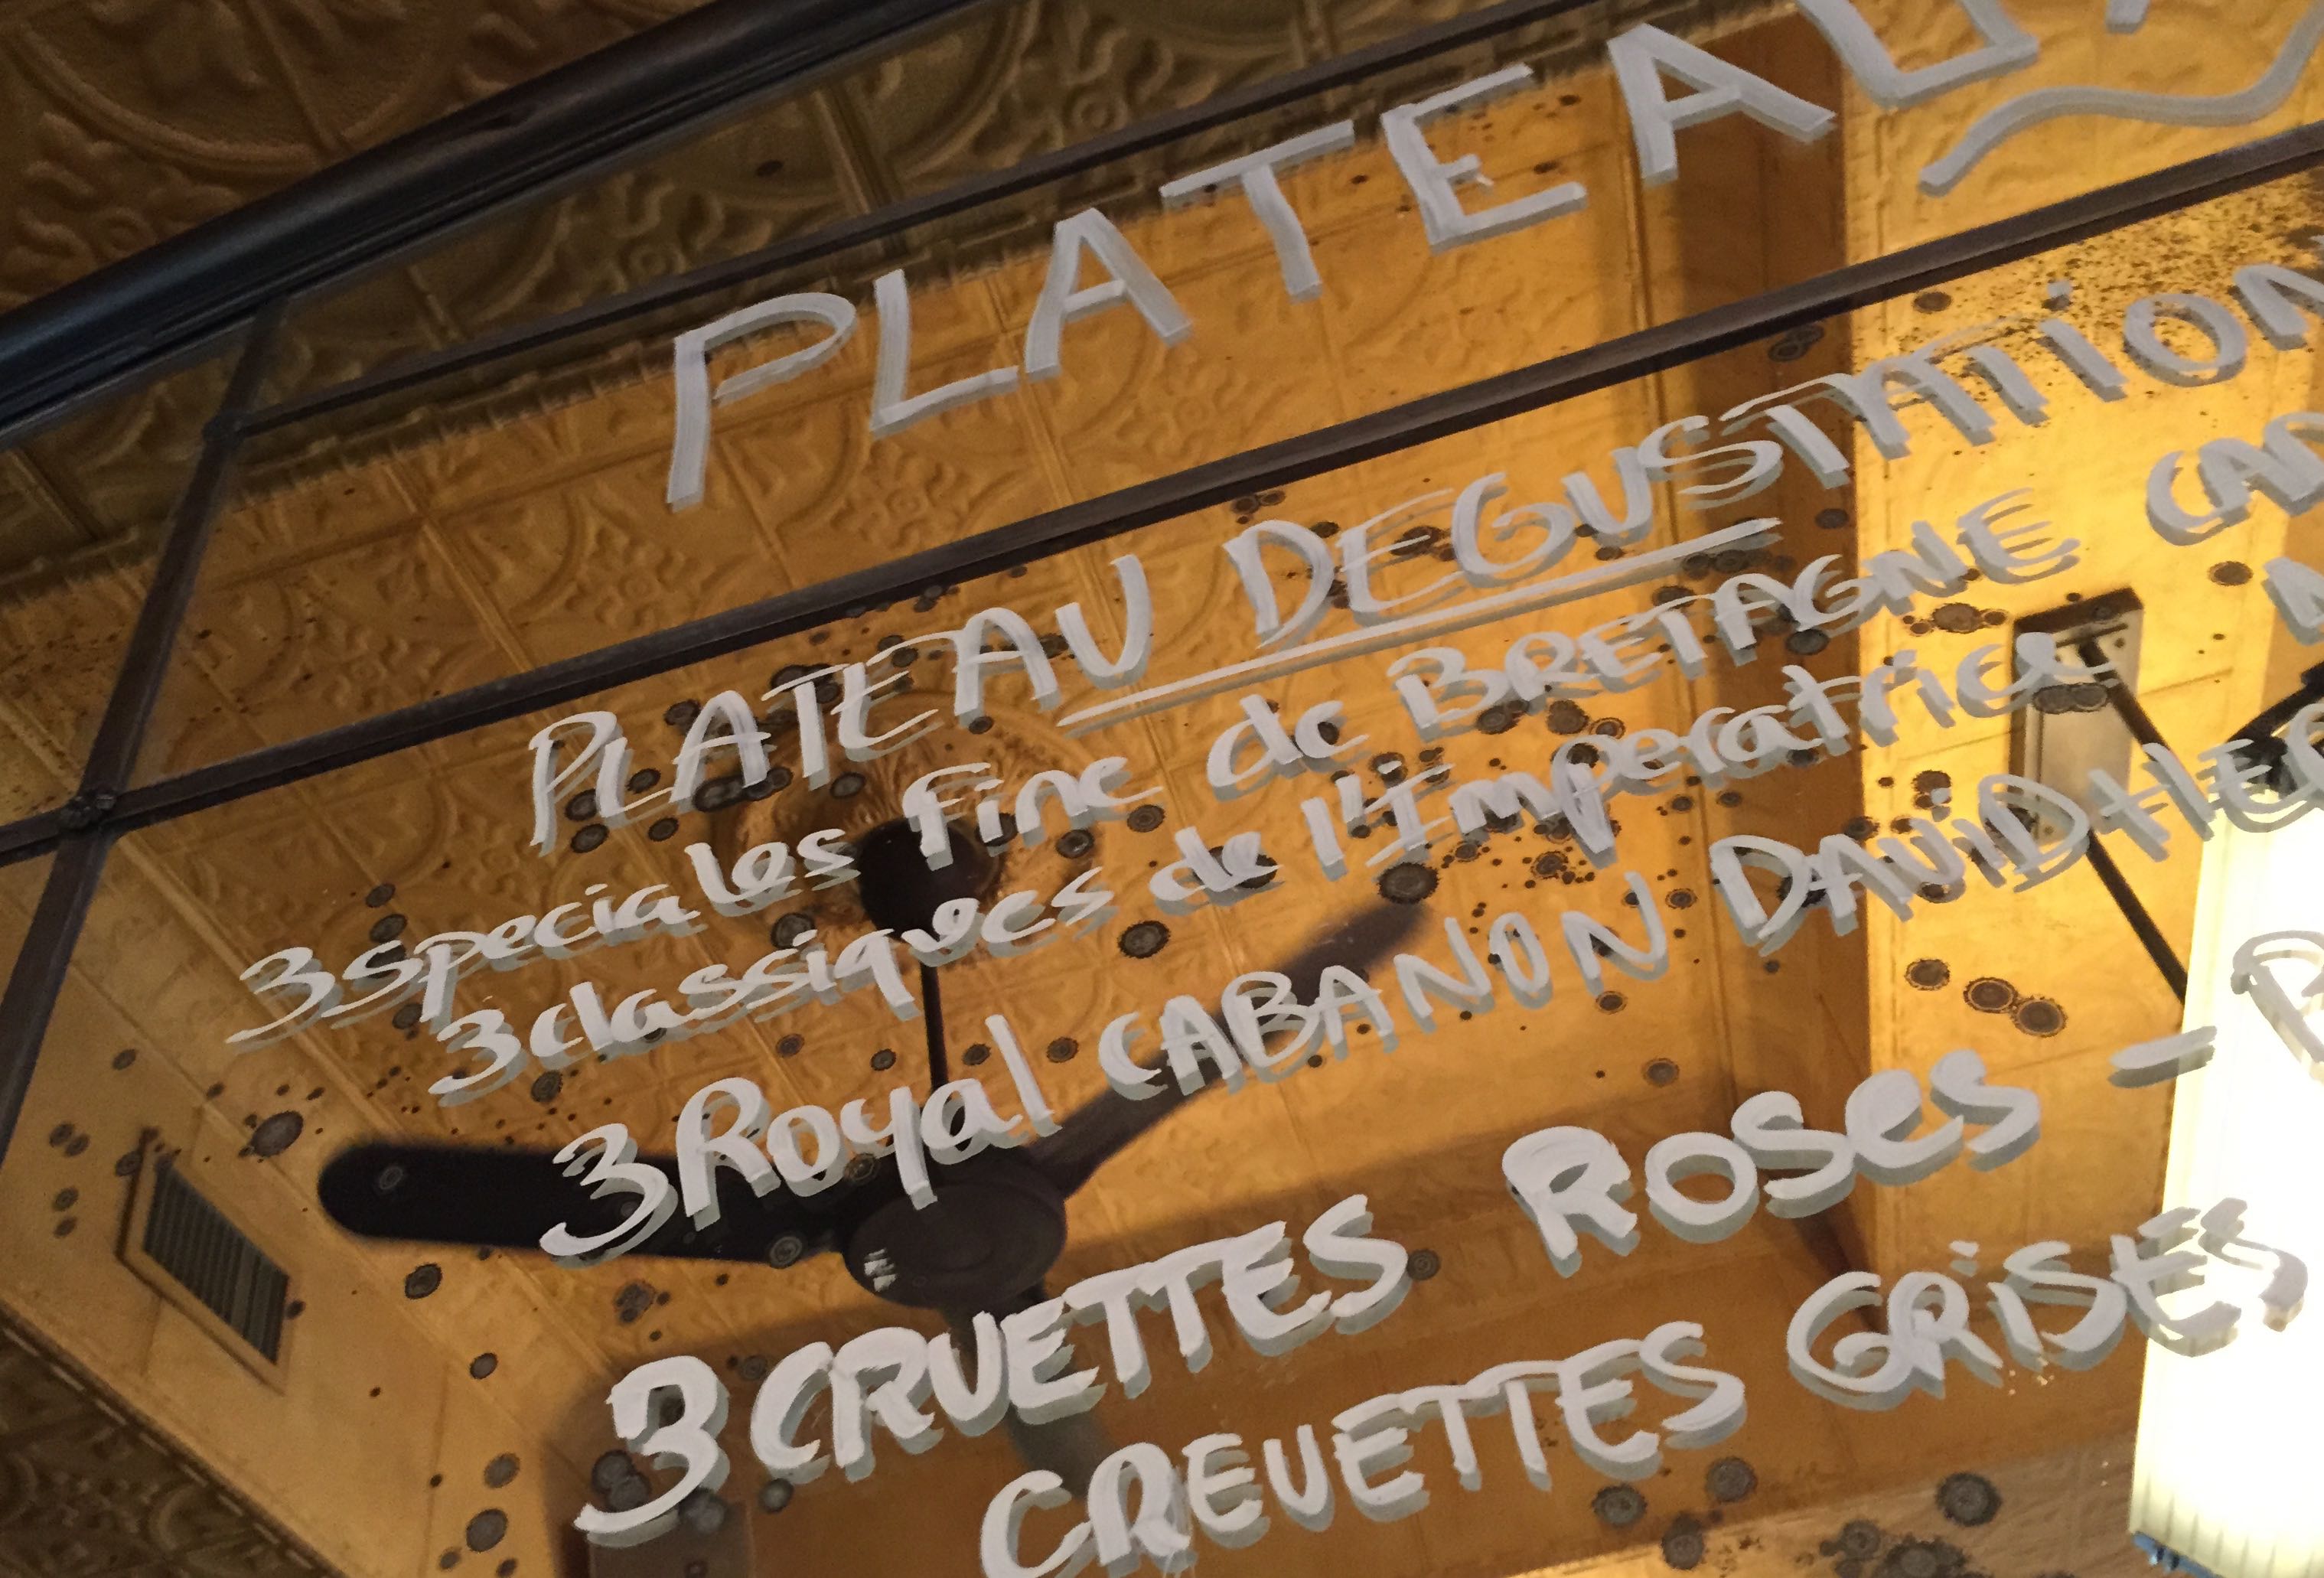 PLATEAU
PLATEAU DEGUSTATION
3 speciales fine de BRETAGNE
3 classiques de l'Imperatrice
3 Royal CABANON DAViD HER
3 CRVETTES ROSES -
CREVETTES GRiSES